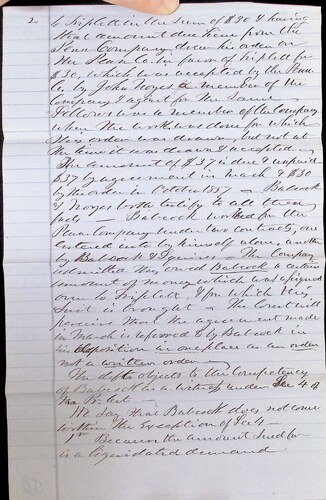 2
to Triplett in the sum of $30 & having
that amount due him from the
Penn Company drew his order on
the Penn Co in favor of Triplett for
$30, which was accepted by the Penn
Co by John Noyes a member of the
Company & agent for the same
Fellows was a member of the Company
when the work was done for which
this order was drawn but not at
the time it was drawn & accepted —
The amount of $37 is due & unpaid
$37 by agreement in March & $30
by the order in October 1857 — Babcock
& Noyes both testify to all these
facts — Babcock worked for the
Penn Company under two contracts, one
entered into by himself alone, another
by Babcock & Squires — The Company
admitted they owed Babcock a certain
amount of money which was assigned
over to Triplett, & for which this
suit is brought — The Court will
perceive that the agreement made
in March is referred to by Babcock in
his deposition in one place as an order
not a written order —
The defts objects to the Competency
of Babcock as a witness under Sec 4 of
the Pr. Act —
We say that Babcock does not come
within the Exception of Sec 4 —
1st Because the amount sued for
is a liquidated demand